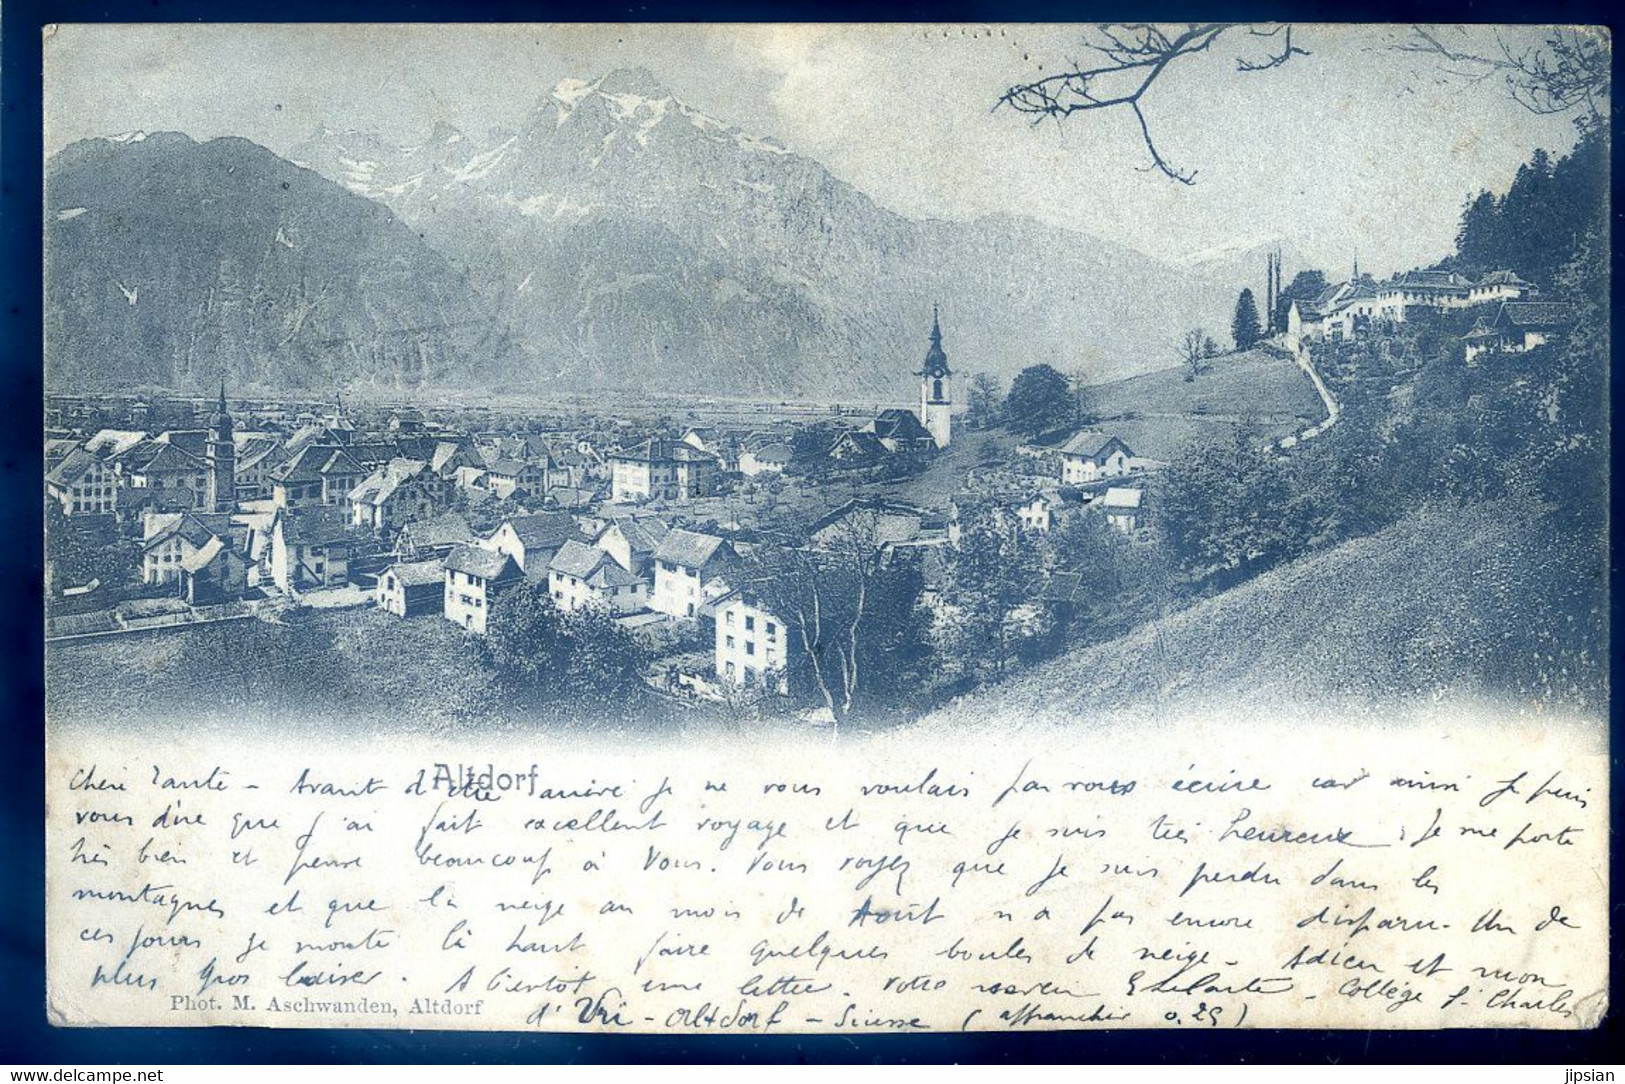 Altdorf
Chère Tante - Avant d'être arrivé je ne vous voulais pas vous écrire car ainsi je puis
vous dire que j'ai fait excellent voyage et que je suis très heureux. Je me porte
très bien et pense beaucoup à Vous. Vous voyez que je suis perdu dans les
montagnes et que là la neige au mois de Août n'a pas encore disparu. Un de
ces jours je monte là haut faire quelques boules de neige - Adieu et mon
plus gros baiser. A bientôt une lettre. Votre - Collège St Charles
Phot. M. Aschwanden, Altdorf
d'Uri - Altdorf - Suisse (affranchir 0.25)
www.delcampe.net
jipsian